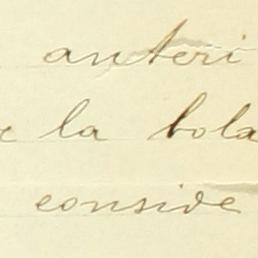 anteri
la bola
conside